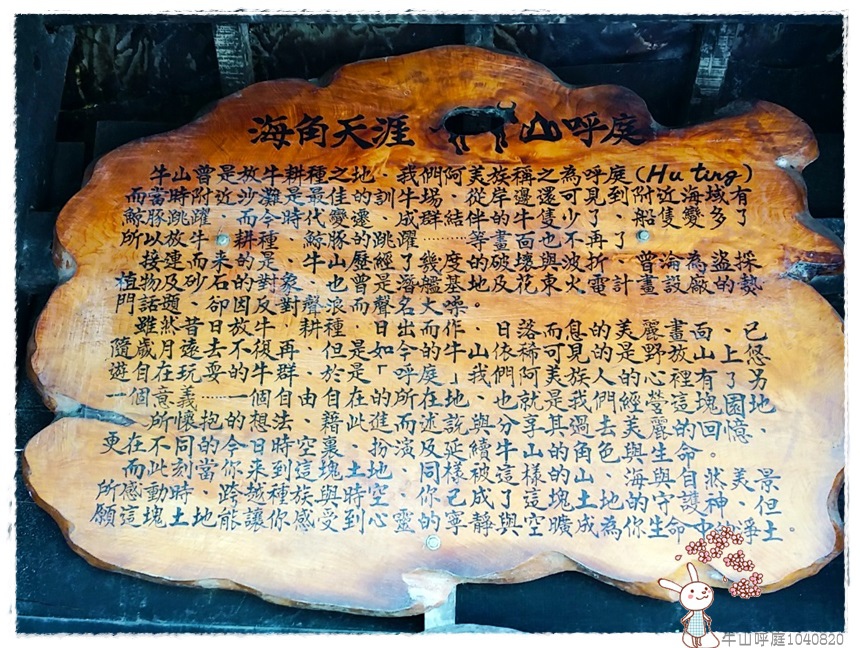 海角天涯 山呼庭
牛山曾是放牛耕種之地、我們阿美族稱之為呼庭(Hu ting)
而當時附近沙灘是最佳的訓牛場、從岸邊還可見到附近海域有
鯨豚跳躍、而今時代變遷、成群結伴的牛隻少了、船隻變多了
所以放牛、耕種、鯨豚的跳躍………等畫面也不再了
接連而來的是、牛山歷經了幾度的破壞與波折、曾淪為盜採
植物及砂石的對象、也曾是艦基地及花東火電計畫設廠的熱
門話題、卻因反對聲浪而聲名大噪。
雖然昔日放牛、耕種、日出而作、日落而息的美麗畫面、已
隨歲月遠去不復再、但如今的牛山依稀可見的是野放山上悠
遊自在玩耍的牛群、於是「呼庭」我們阿美族人的心裡有了另
一個意義……一個自由、自在的地、也就是我們經營這塊園地
所懷抱的想法、藉此進而述說、與分享其過去美麗的回憶、
更在不同的今日時空裏、扮演及延續牛山的角色與生命。
而此刻當你來到這塊土地、同樣被這樣的山、海與自然美景
所感動時、跨越種族與時空、你已成了這塊土地的守護神、但
願這塊土地能讓你感受到心靈的寧靜與空曠成為你生命中的淨土。
牛山呼庭1040820